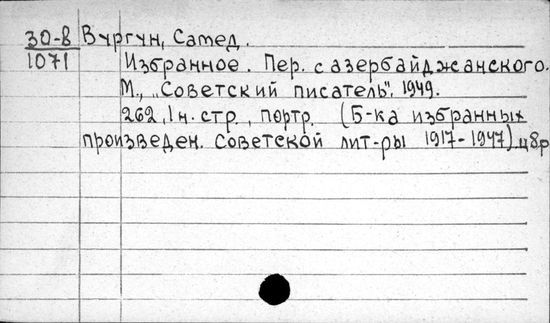 30-8 Вургун, Самед.
1071 Избранное. Пер. с азербайджанского.
М., „Советский писатель". 1949.
262, 1 н. стр., портр. (Б-ка избранных
произведен. советской лит-ры 1917-1947)